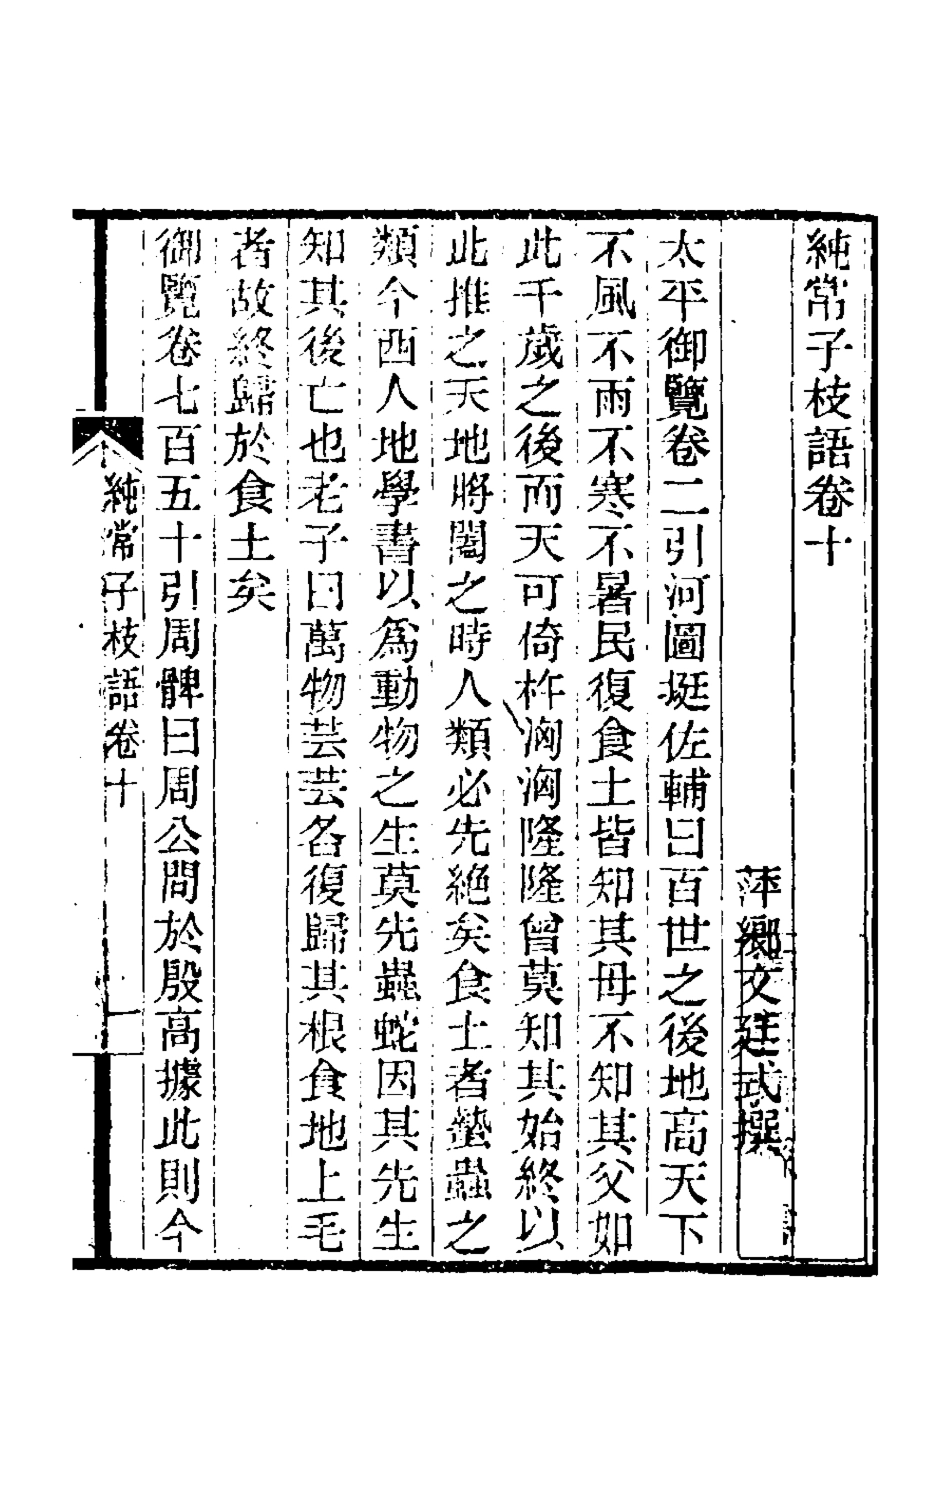 純常子枝語卷十
萍鄉文廷式撰
太平御覽卷二引河圖挺佐輔曰百世之後地高天下
不風不雨不寒不暑民復食土皆知其母不知其父如
此千歲之後而天可倚杵洶洶隆隆曾莫知其始終以
此推之天地將闔之時人類必先絕矣食土者蟄蟲之
類今西人地學書以爲動物之生莫先蟲蛇因其先生
知其後亡也老子曰萬物芸芸各復歸其根食地上毛
者故終歸於食土矣
御覽卷七百五十引周髀曰周公問於殷高據此則今
純常子枝語卷十
一